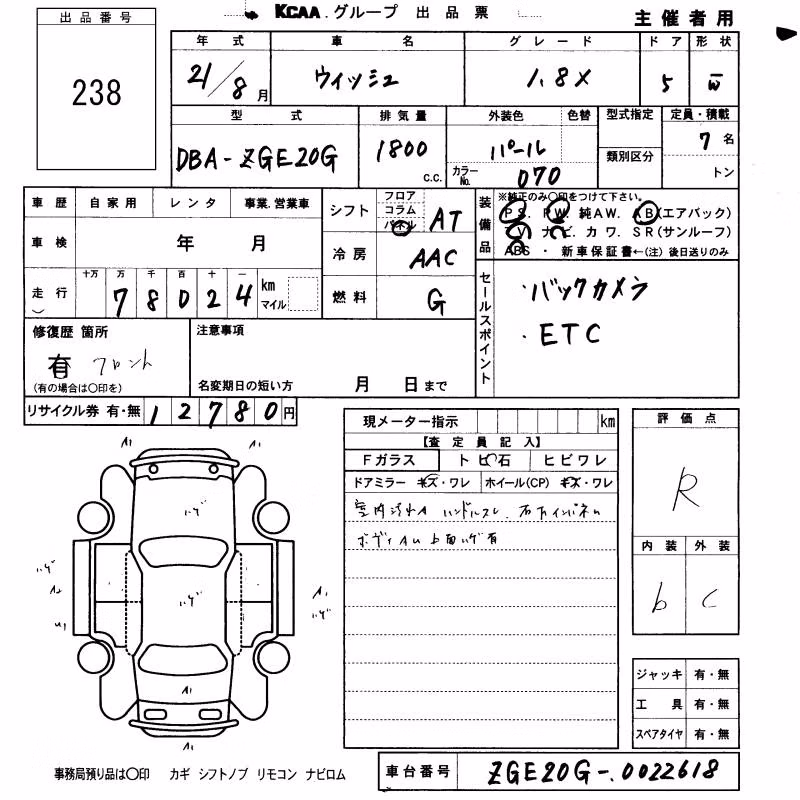 KCAA グループ 出品票
主催者用
出品番号
238
年式 車名 グレード ドア 形状
21/8月 ウィッシュ 1.8X 5 W
型式 排気量 外装色 色替 型式指定 定員・積載
DBA-ZGE20G 1800 c.c. パール 類別区分 7名
カラーNo. 070 トン
車歴 自家用 レンタ 事業.営業車
車検 年 月
走行 十万 万 千 百 十 一
78024 km マイル
シフト フロア コラム パネル AT
冷房 AAC
燃料 G
装備品
※純正のみ○印をつけて下さい。
PS. PW. 純AW. AB(エアバック)
TV ナビ. カワ. SR(サンルーフ)
ABS ・ 新車保証書←(注) 後日送りのみ
セールスポイント
・バックカメラ
・ETC
修復歴 箇所
有 フロント
(有の場合は○印を)
注意事項
名変期日の短い方 月 日まで
リサイクル券 有・無 12780円
現メーター指示 km
【査定員記入】
Fガラス トビ石 ヒビワレ
ドアミラー キズ・ワレ ホイール(CP) キズ・ワレ
室内汚れA ハンドルスレ
ボディAU 上面ハゲ有
評価点
R
内装 外装
b C
A1 A1
ハゲ
ハゲ A2 ハゲ A1 ハゲ
U1
A1
A1
ジャッキ 有・無
工具 有・無
スペアタイヤ 有・無
事務局預り品は○印 カギ シフトノブ リモコン ナビロム
車台番号 ZGE20G-0022618